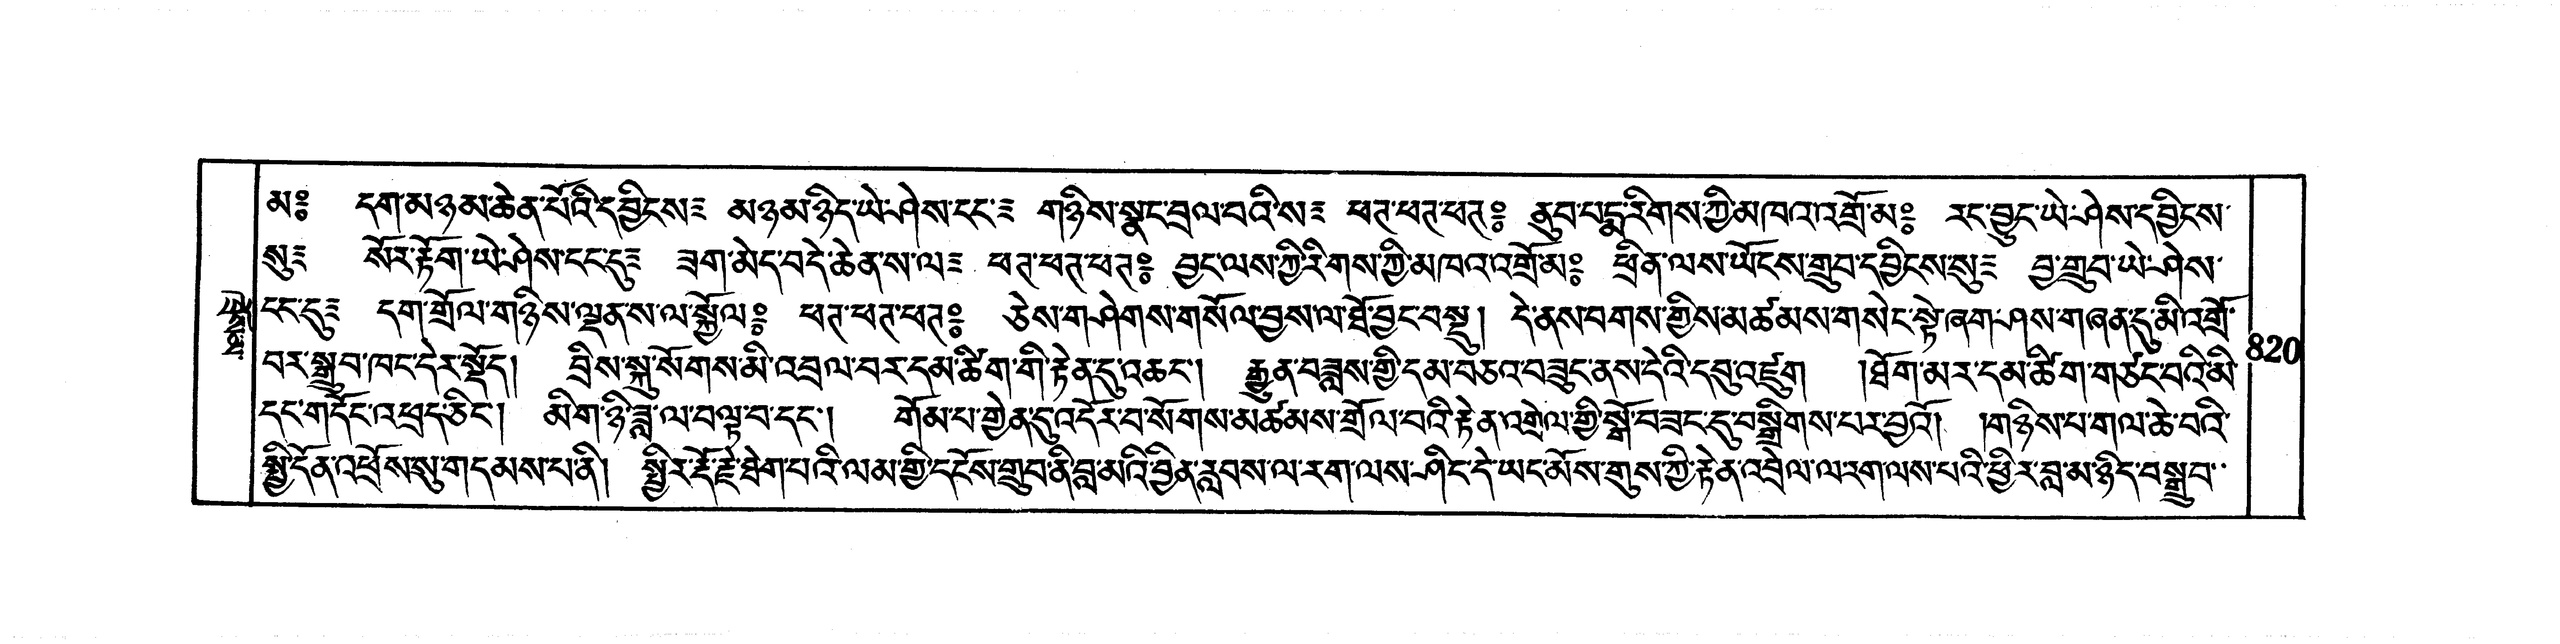 མ༔ དག་མཉམ་ཆེན་པོའི་དབྱིངས༔ མཉམ་ཉིད་ཡེ་ཤེས་ངང་༔ གཉིས་སྣང་བྲལ་བའི་ས༔ ཕཊ་ཕཊ་ཕཊ༔ ནུབ་པདྨ་རིགས་ཀྱི་མཁའ་འགྲོ་མ༔ རང་བྱུང་ཡེ་ཤེས་དབྱིངས་
སུ༔ སོར་རྟོག་ཡེ་ཤེས་ངང་དུ༔ ཟག་མེད་བདེ་ཆེན་ས་ལ༔ ཕཊ་ཕཊ་ཕཊ༔ བྱང་ལས་ཀྱི་རིགས་ཀྱི་མཁའ་འགྲོ་མ༔ ཕྲིན་ལས་ཡོངས་གྲུབ་དབྱིངས་སུ༔ བྱ་གྲུབ་ཡེ་ཤེས་
ངང་དུ༔ དག་གྲོལ་གཉིས་ལྡན་ས་ལ་སྐྱོལ༔ ཕཊ་ཕཊ་ཕཊ༔ ཅེས་གཤེགས་གསོལ་བྱས་ལ་ཐོ་བྱང་བསྡུ། དེ་ནས་བགས་ཀྱིས་མཚམས་གསེང་སྟེ་ཞག་ཤས་གཞན་དུ་མི་འགྲོ་
བར་སྒྲུབ་ཁང་དེར་སྡོད། བྲིས་སྐུ་སོགས་མི་འབྲལ་བར་དམ་ཚིག་གི་རྟེན་དུ་འཆང་། རྒྱུན་བཟླས་ཀྱི་དམ་བཅའ་བཟུང་ནས་དེའི་དབུ་འཛུག །ཐོག་མར་དམ་ཚིག་གཙང་བའི་མི་
དང་གདོང་འཕྲད་ཅིང་། མིག་ཉི་ཟླ་ལ་བལྟ་བ་དང་། གོམ་པ་གྱེན་དུ་འདོར་བ་སོགས་མཚམས་གྲོལ་བའི་རྟེན་འགྲེལ་གྱི་སྒོ་བཟང་དུ་བསྒྲིགས་པར་བྱའོ། །གཉིས་པ་གལ་ཆེ་བའི་
སྤྱི་དོན་འཕྲོས་སུ་གདམས་པ་ནི། སྤྱིར་རྡོ་རྗེ་ཐེག་པའི་ལམ་གྱི་དངོས་གྲུབ་ནི་བླ་མའི་བྱིན་རླབས་ལ་རག་ལས་ཤིང་དེ་ཡང་མོས་གུས་ཀྱི་རྟེན་འབྲེལ་ལ་རག་ལས་པའི་ཕྱིར་བླ་མ་ཉིད་བསྒྲུབ་
820